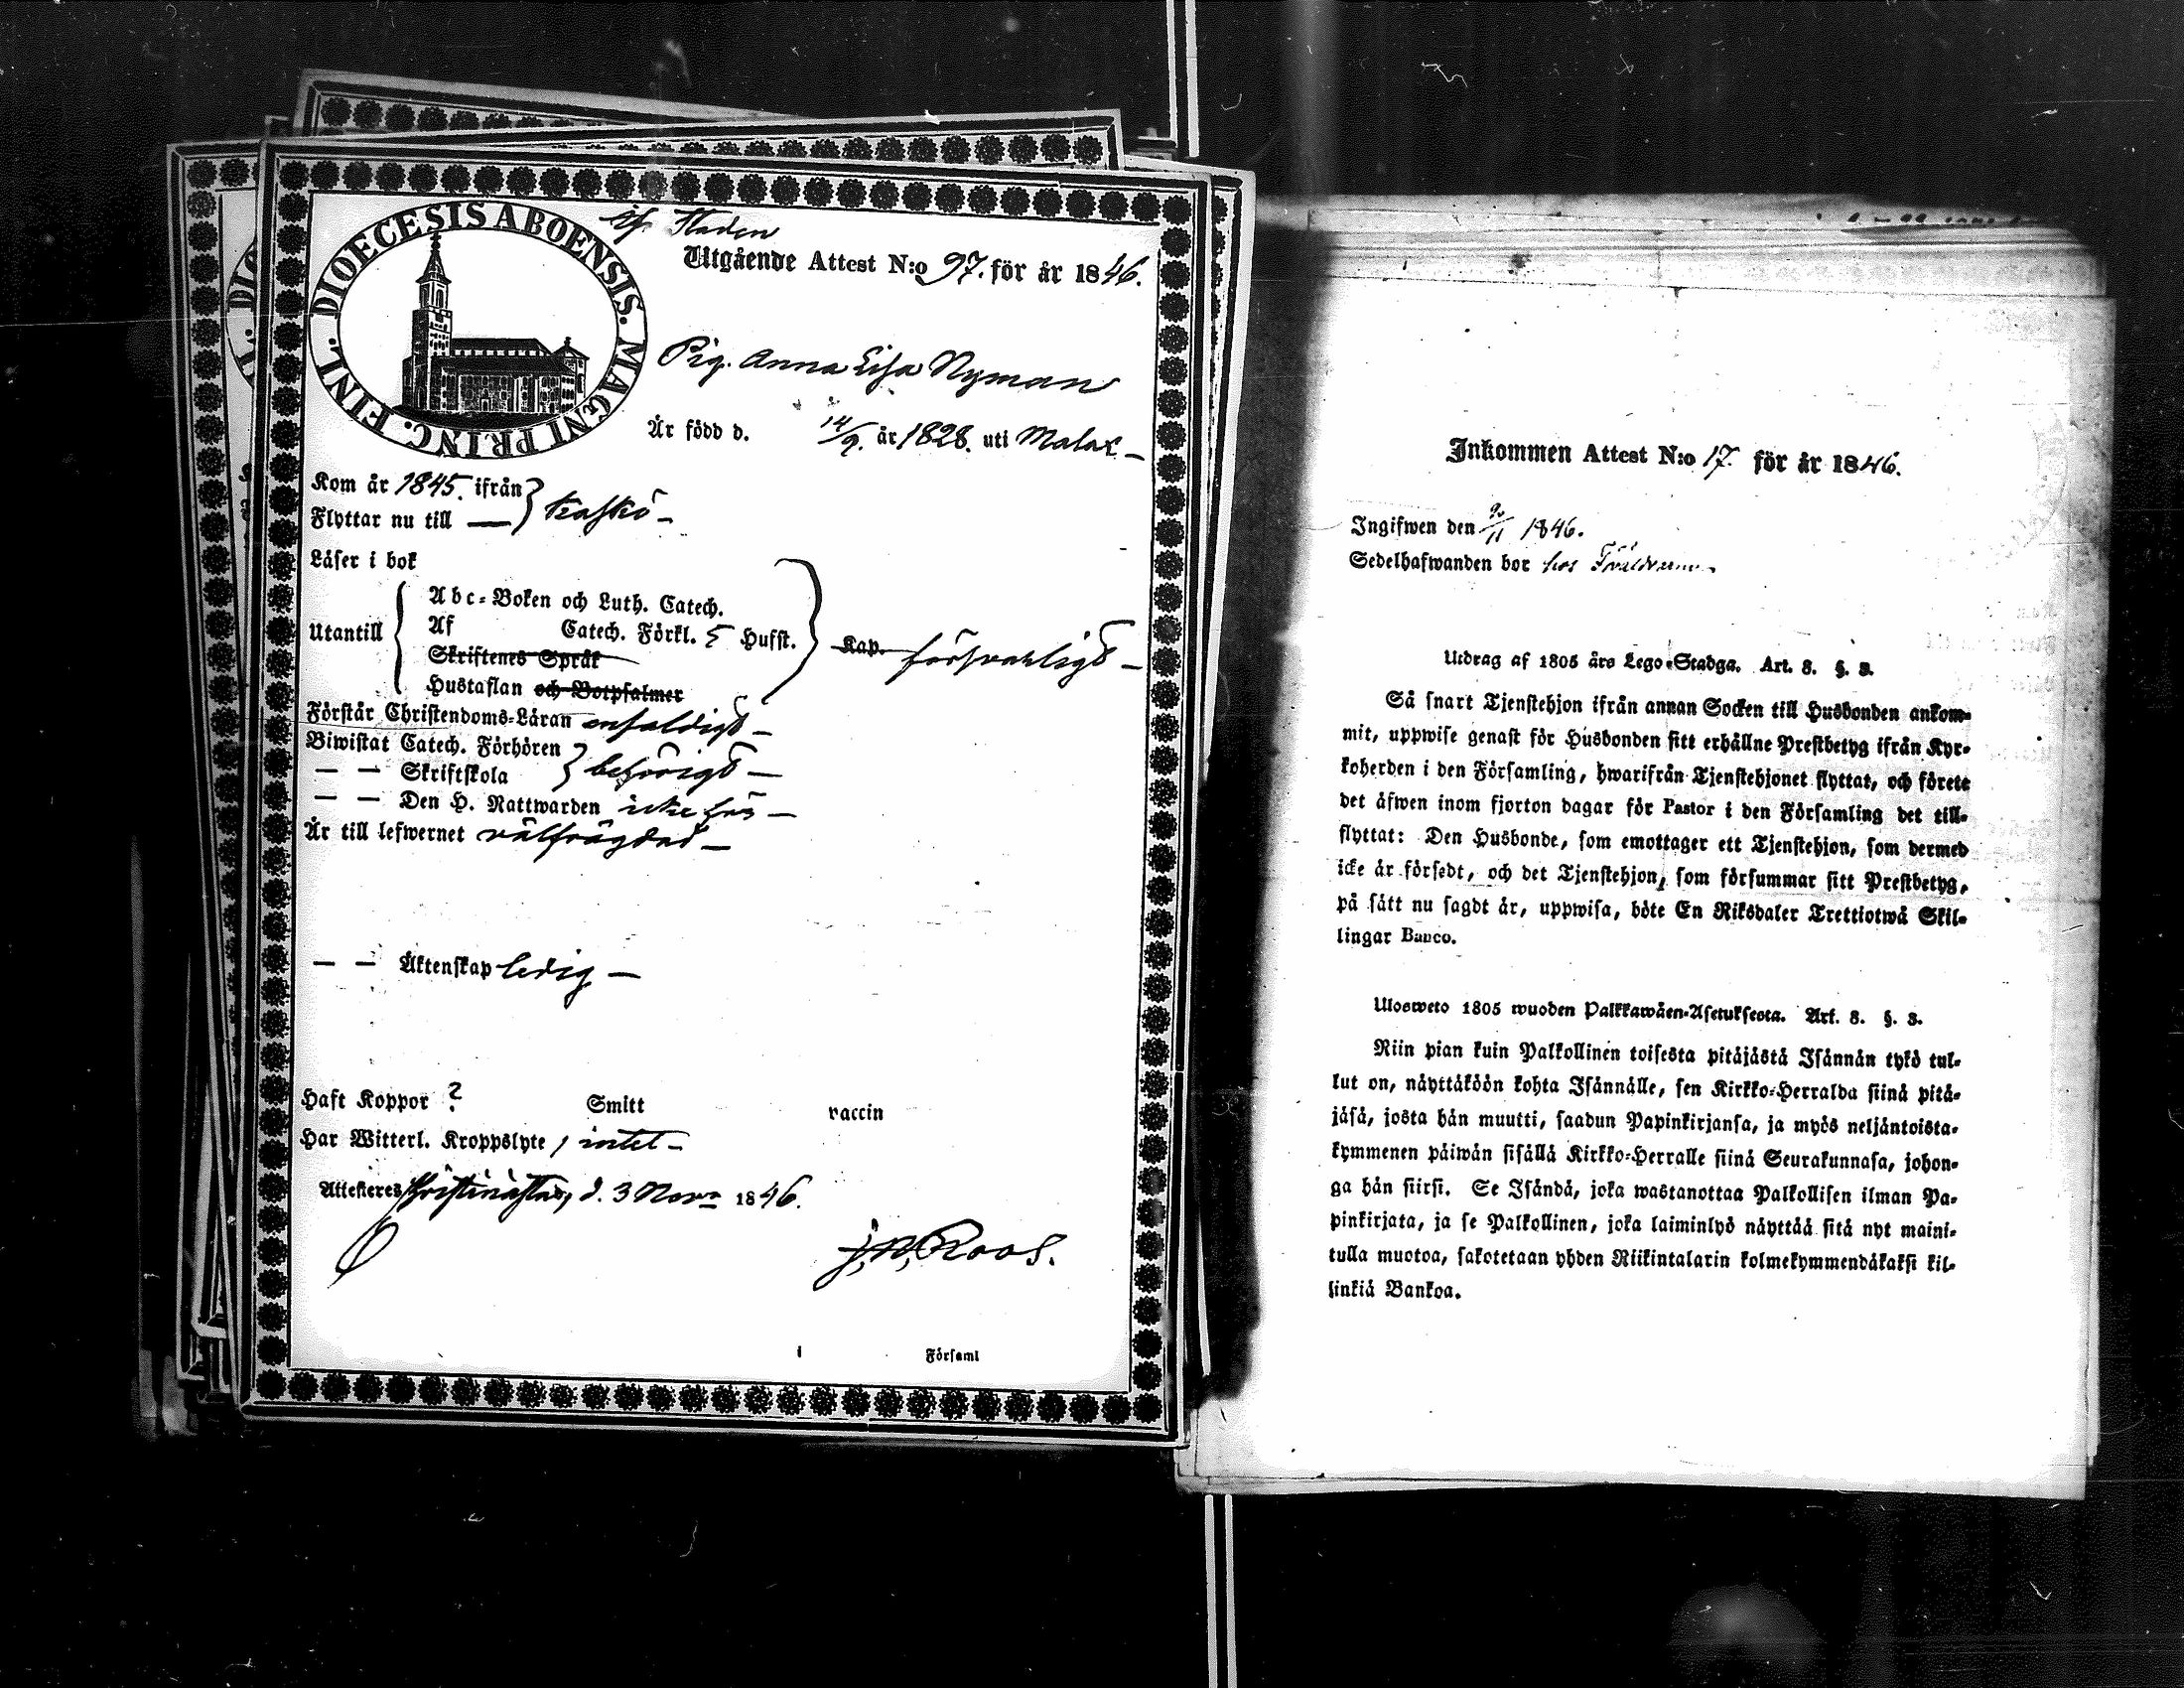 DIOECESIS ABOENSIS. MAGNI PRINC. FINL.
Staden
Utgående Attest N:o 97. för år 1846.
Pig. Anna Lisa Nyman
Är född d. 14/9. år 1828. uti Malax –
Kom år 1845. ifrån
Flyttar nu till — } Kaskö –
Läser i bok
Abc-Boken och Luth. Catech.
Utantill { Af Catech. Förkl. 5 Hufst. } Kap. försvarligt –
Skriftenes Språk
Hustaflan och Botpsalmer
Förstår Christendoms-Läran enfaldigt –
Biwistat Catech. Förhören
— — Skriftskola } behörigt –
— — Den H. Nattwarden icke här –
Är till lefwernet välfrägdad –
— — Äktenskap ledig –
Haft Koppor ? Smitt vaccin
Har Witterl. Kroppslyte, intet –
Attesteres Christinæstad, d. 3 Nov. 1846.
J. W. Roos.
Församl
Inkommen Attest N:o 17. för år 1846.
Ingifwen den 9/11 1846.
Sedelhafwanden bor hos Föräldrarne
Utdrag af 1805 års Lego-Stadga. Art. 8. §. 3.
Så snart Tjenstehjon ifrån annan Socken till Husbonden ankom-
mit, uppwise genast för Husbonden sitt erhållne Prestbetyg ifrån Kyr-
koherden i den Församling, hwarifrån Tjenstehjonet flyttat, och förete
det äfwen inom fjorton dagar för Pastor i den Församling det till-
flyttat: Den Husbonde, som emottager ett Tjenstehjon, som dermed
icke är försedt, och det Tjenstehjon, som försummar sitt Prestbetyg,
på sätt nu sagdt är, uppwisa, böte En Riksdaler Trettiotwå Skil-
lingar Banco.
Ulosweto 1805 wuoden Palkkawäen-Asetuksesta. Art. 8. §. 3.
Niin pian kuin Palkollinen toisesta pitäjästä Isännän tykö tul-
lut on, näyttäköön kohta Isännälle, sen Kirkko-Herralda siinä pitä-
jäsä, josta hän muutti, saadun Papinkirjansa, ja myös neljäntoista-
kymmenen päiwän sisällä Kirkko-Herralle siinä Seurakunnasa, johon-
ga hän siirsi. Se Isändä, joka wastanottaa Palkollisen ilman Pa-
pinkirjata, ja se Palkollinen, joka laiminlyö näyttää sitä nyt maini-
tulla muotoa, sakotetaan yhden Riikintalarin kolmekymmendäkaksi kil-
linkiä Bankoa.